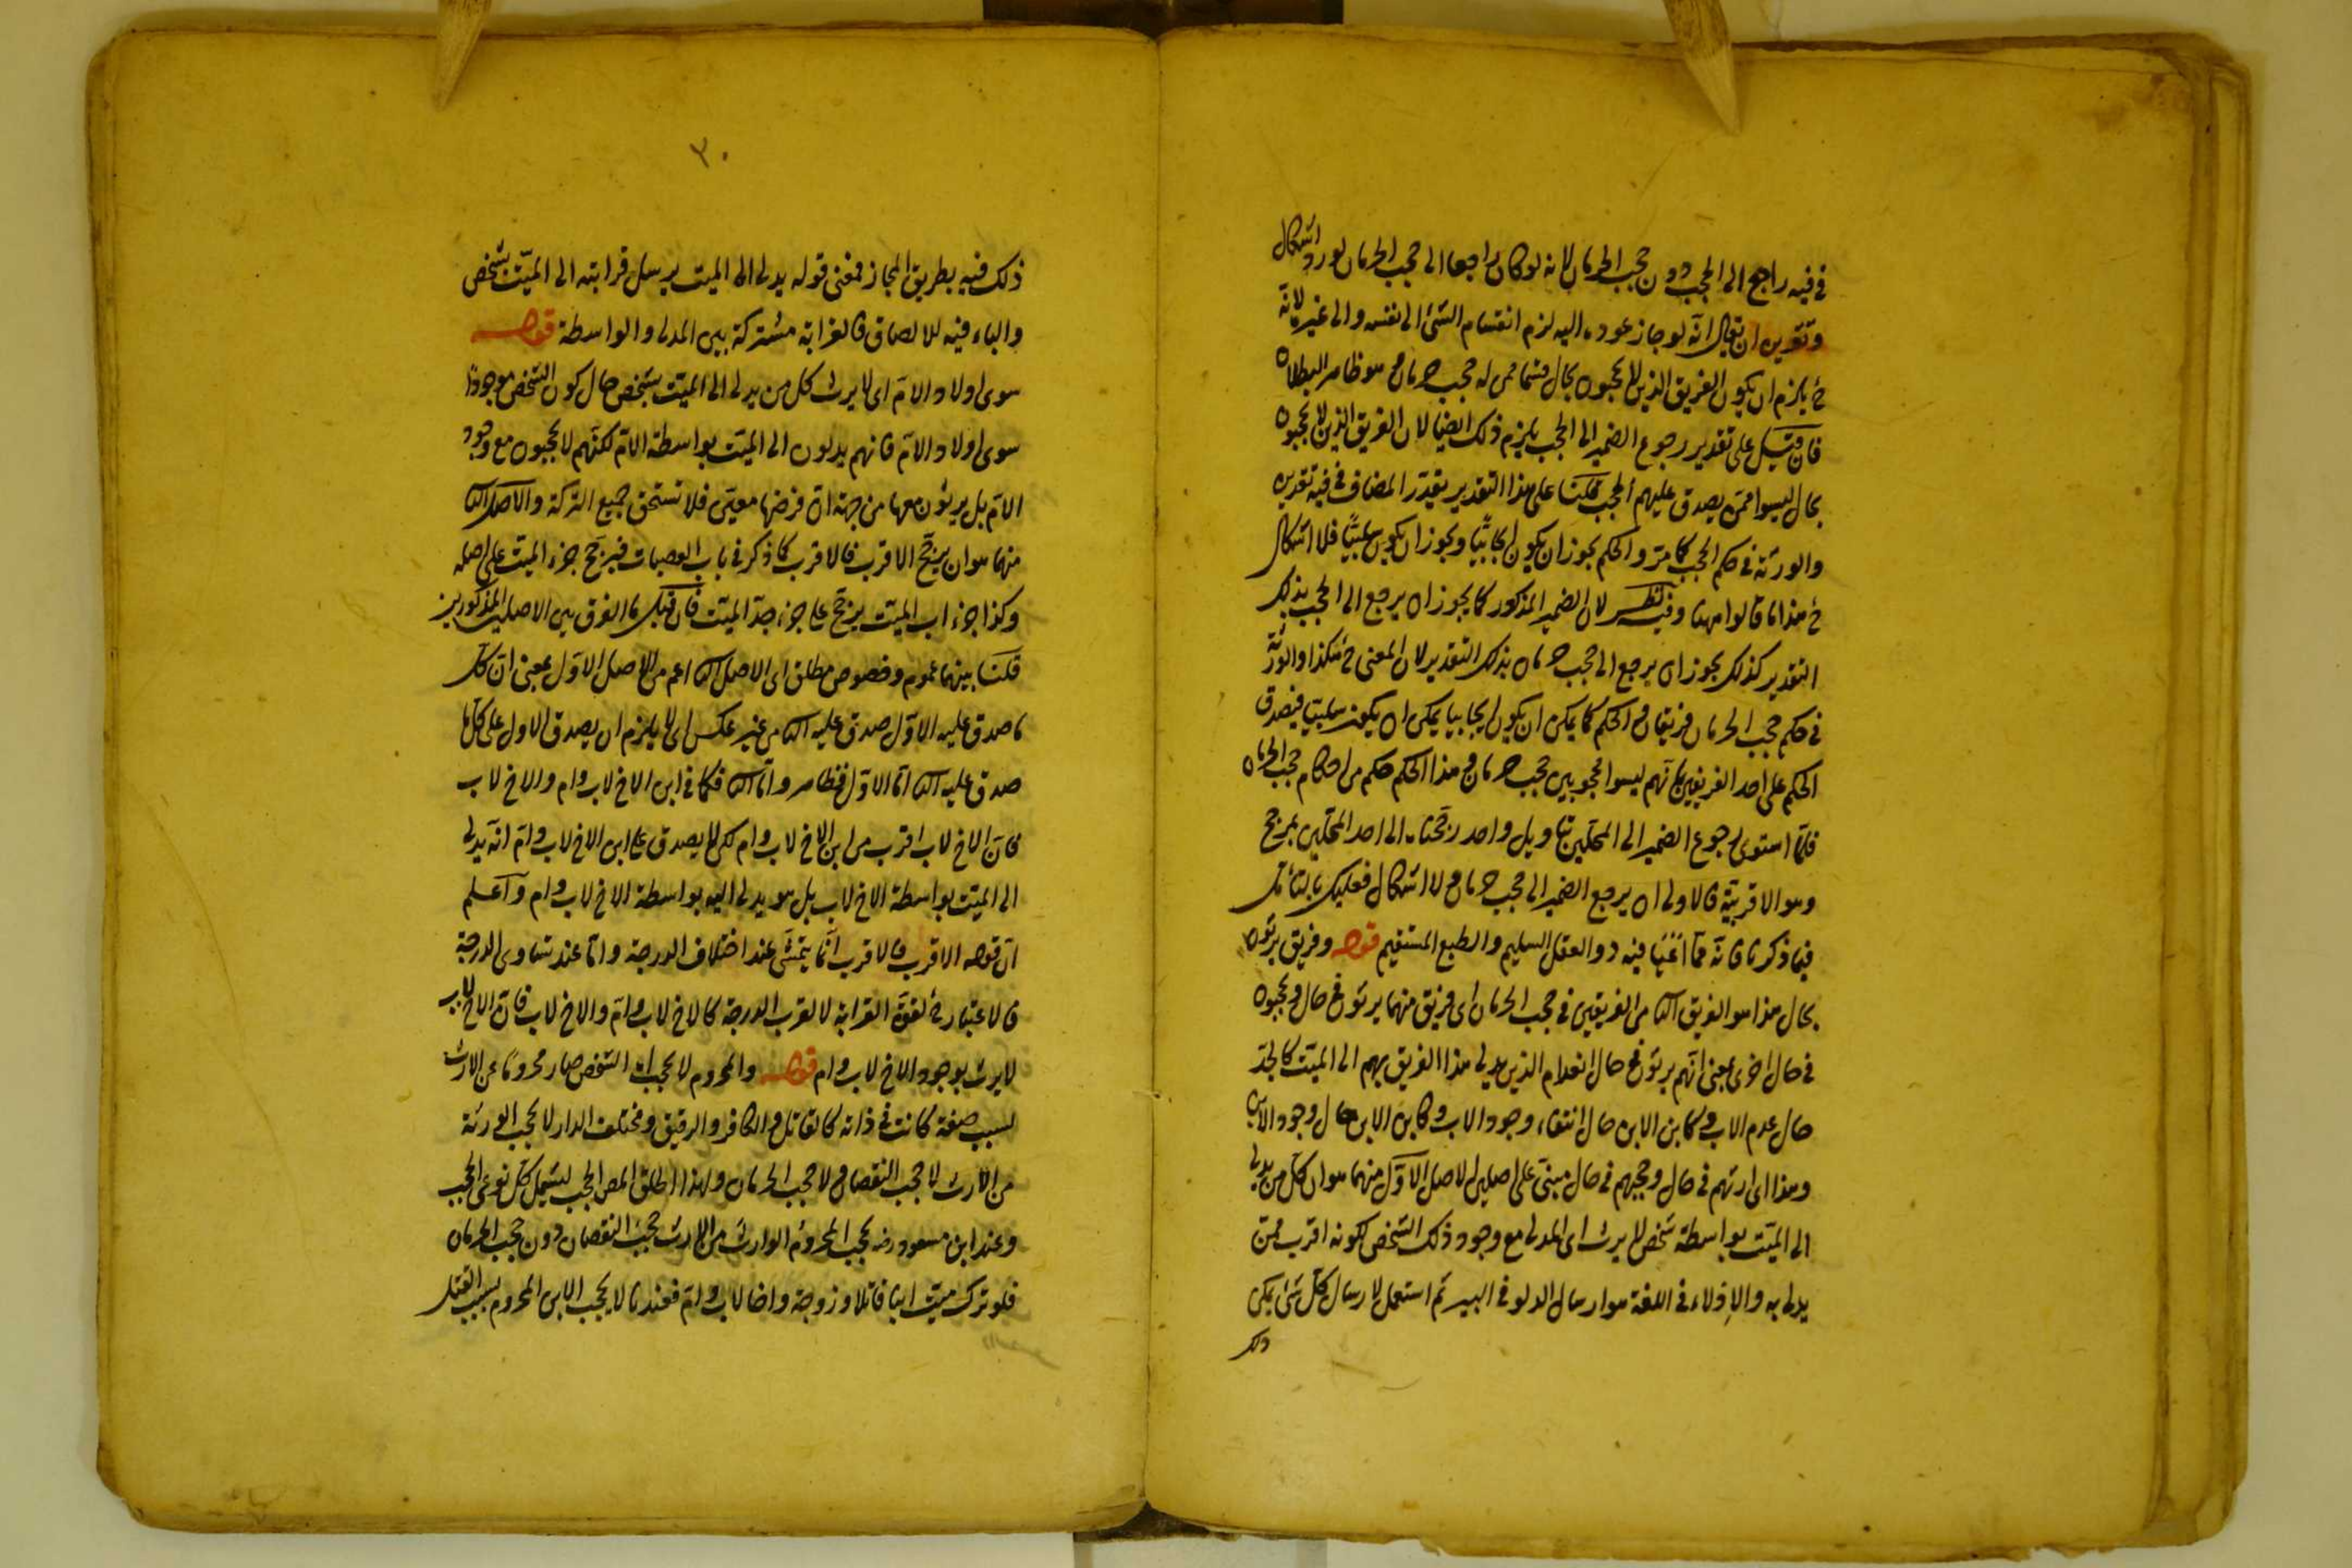 في فيه راجع الى الحجب دون حجب الحرمان لانه لو كان راجعا الى حجب الحرمان لورد اشكال
وتقريره ان يقال انه لو جاز عوده اليه لزم انقسام الشئ الى نفسه والى غيره لانه
ح يلزم ان يكون الفريق الذين لا يحجبون بحال قسما من له حجب حرمان وهو ظاهر البطلان
فان قيل على تقدير رجوع الضمير الى الحجب يلزم ذلك ايضا لان الفريق الذين لا يحجبون
بحال ليسوا ممن يصدق عليهم الحجب قلنا على هذا التقدير يقدر المضاف في فيه تقديره
والورثة في حكم الحجب كما مر والحكم يجوز ان يكون ايجابيا ويجوز ان يكون سلبيا فلا اشكال
ح هذا ما قالوا ههنا وفيه نظر لان الضمير المذكور كما يجوز ان يرجع الى الحجب بذلك
التقدير كذلك يجوز ان يرجع الى حجب حرمان بذلك التقدير لان المعنى ح هكذا والورثة
في حكم حجب الحرمان فريقان والحكم كما يمكن ان يكون ايجابيا يمكن ان يكون سلبيا فيصدق
الحكم على احد الفريقين بانهم ليسوا محجوبين حجب حرمان وهذا الحكم حكم من احكام حجب الحرمان
فلما استوى رجوع الضمير الى المحلين بتاويل واحد رجحنا الى احد المحلين بمرجح
وهو الاقربية فالاولى ان يرجع الضمير الى حجب حرمان ولا اشكال فعليك بالتأمل
فيما ذكرنا فانه مما فيه ذو العقل السليم والطبع المستقيم قوله وفريق يرثون
بحال هذا هو الفريق الثا من الفريقين في حجب الحرمان اى فريق منهما يرثون في حال ويحجبون
في حال اخرى بمعنى انهم يرثون في حال انعدام الذين يدلى هذا الفريق بهم الى الميت كالجد
حال عدم الاب وكابن الابن حال انتفاء وجود الاب وكابن الابن حال وجود الابن
وهذا اى ارثهم في حال وحجبهم في حال مبنى على اصلين الاصل الاول منهما هو ان كل من يدلى
الى الميت بواسطة شخص لا يرث اى المدلى مع وجود ذلك الشخص لكونه اقرب ممن
يدلى به والادلاء في اللغة هو ارسال الدلو في البير ثم استعمل لارسال كل شئ يمكن
ذلك
٢٠
ذلك فيه بطريق المجاز فمعنى قوله يدلى الى الميت يرسل قرابته الى الميت بشخص
والباء فيه للالصاق فالقرابة مشتركة بين المدلى والواسطة قوله
سوى اولاد الام اى لا يرث كل من يدلى الى الميت بشخص حال كون الشخص موجودا
سوى اولاد الام فانهم يدلون الى الميت بواسطة الام لكنهم لا يحجبون مع وجود
الام بل يرثون معها من جهة ان فرضها معين فلا تستحق جميع التركة والاصل الثا
منهما هو ان يرجح الاقرب فالاقرب كما ذكر في باب العصبات فيرجح جزء الميت على اصله
وكذا جزء اب الميت يرجح على جزء جد الميت فان قيل ما الفرق بين الاصلين المذكورين
قلنا بينهما عموم وخصوص مطلق اى الاصل الثا اعم من الاصل الاول بمعنى ان كل
ما صدق عليه الاول صدق عليه الثا من غير عكس اى لا يلزم ان يصدق الاول على كل ما
صدق عليه الثا اما الاول فظاهر واما الثا فكما في ابن الاخ لاب وام والاخ لاب
فان الاخ لاب اقرب من ابن الاخ لاب وام لكن لا يصدق على ابن الاخ لاب وام انه يدلى
الى الميت بواسطة الاخ لاب بل هو يدلى اليه بواسطة الاخ لاب وام واعلم
ان قوله الاقرب فالاقرب انما يتمشى عند اختلاف الدرجة واما عند تساوى الدرجة
فالاعتبار ح لقوة القرابة لا لقرب الدرجة كالاخ لاب وام والاخ لاب فان الاخ لاب
لا يرث بوجود الاخ لاب وام قوله والمحروم لا يحجب اى الشخص صار محروما عن الارث
بسبب صفة كانت في ذاته كالقاتل والكافر والرقيق ومختلف الدار لا يحجب الورثة
من الارث لا حجب النقصان ولا حجب الحرمان ولهذا اطلق المص الحجب ليشمل كل نوعى الحجب
وعند ابن مسعود رضه يحجب المحروم الوارث من الارث حجب النقصان دون حجب الحرمان
فلو ترك ميت ابنا قاتلا وزوجة واخا لاب وام فعندنا لا يحجب الابن المحروم بسبب القتل